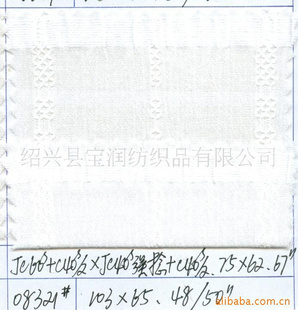 绍兴县宝润纺织品有限公司
JC60^s+C40^s/2×JC40^s强捻+C40^s/2. 75×62. 67"
08321# 103×65. 48/50"
alibaba.com.cn